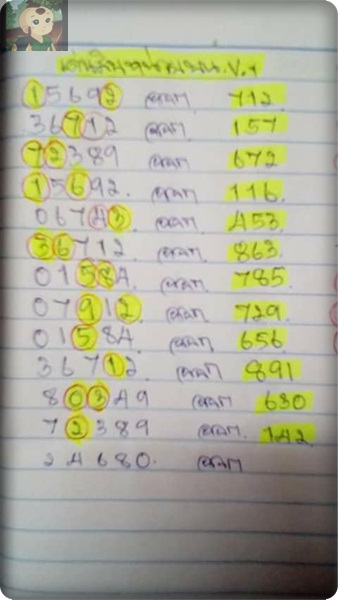 15692 ออก 712
36712 ออก 157
72389 ออก 672
15692. ออก 116
06743 ออก 453
36712 ออก 863
01584 ออก 785
07912 ออก 729
01584 ออก 656
36712 ออก 891
80349 ออก 630
72389 ออก. 142
24680. ออก